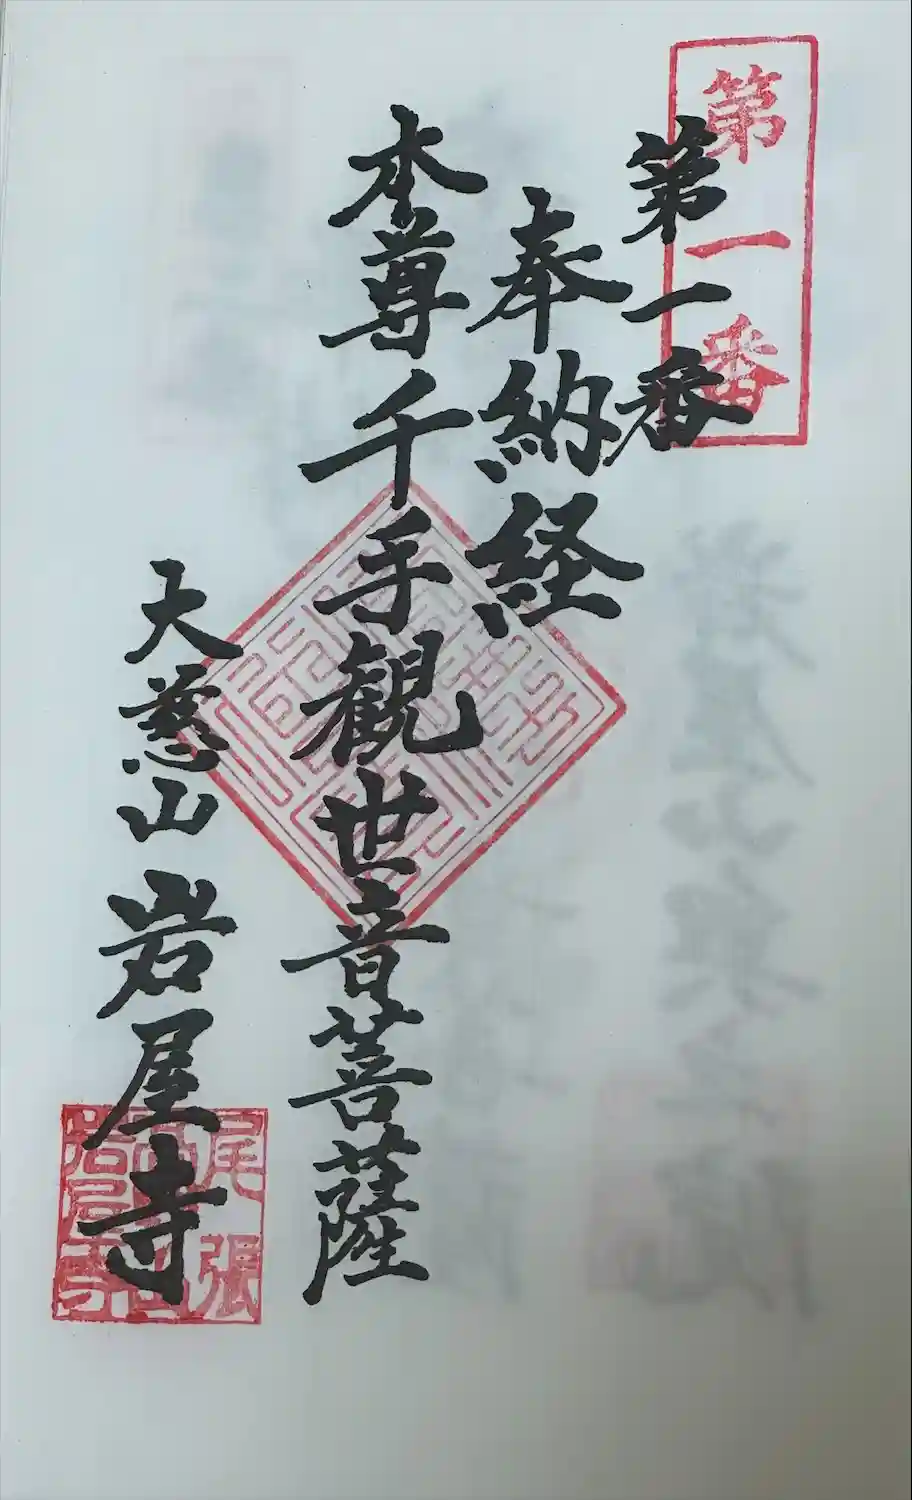 第一番
第一番
奉納経
本尊千手観世音菩薩
大慈山岩屋寺
尾張
岩屋寺